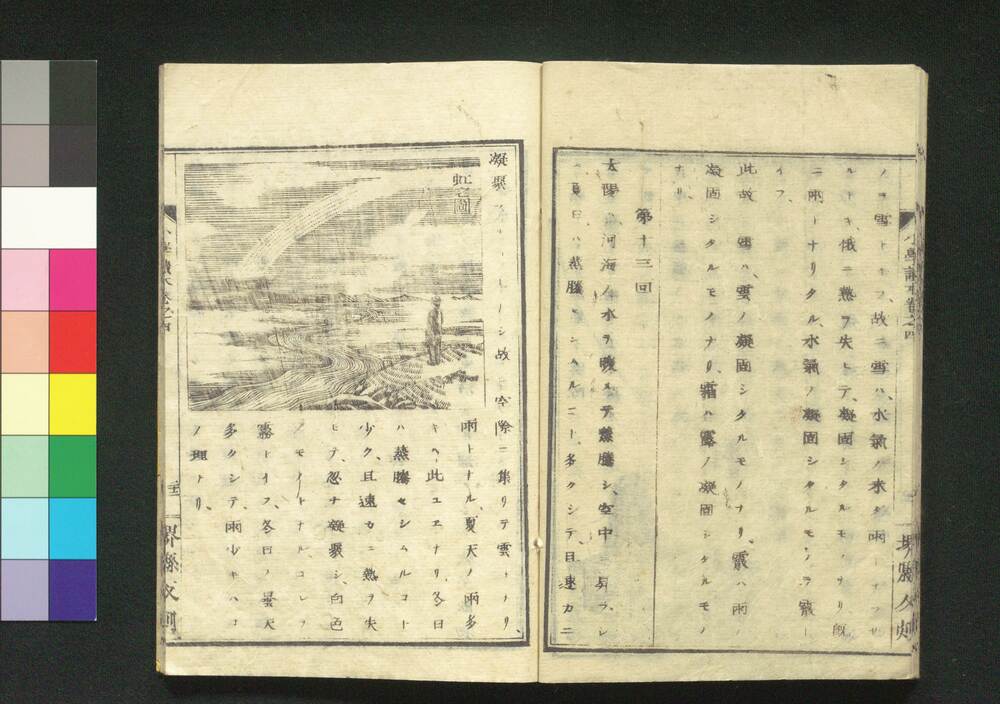 ノヲ雪トイフ、故ニ雪ハ、水氣ノ未タ雨トナラサ
ルトキ、俄ニ熱ヲ失ヒテ、凝固シタルモノナリ、既
ニ雨トナリタル、水氣ノ凝固シタルモノヲ霰ト
イフ、
此故 雪ハ、雲ノ凝固シタルモノナリ、霰ハ雨ノ
凝固シタルモノナリ、霜ハ露ノ凝固シタルモノ
ナリ、
第十三回
太陽、河海ノ水ヲ暖メテ蒸騰シ、空中ニ昇ラシ
ム、夏日ハ蒸騰セシムルコト、多クシテ、且速カニ
小學讀本卷之四
堺縣文
凝聚
故ニ空際ニ集リテ雲トナリ、
雨トナル、夏天ノ雨多
キハ、此ユエナリ、冬日
ハ蒸騰セシムルコト
少ク、且速カニ熱ヲ失
ヒテ、忽チ凝聚シ、白色
ノモイトナル、コレヲ
霧トイフ、冬日ノ曇天
多クシテ、雨少キハ、コ
ノ理ナリ、
虹之圖
卷之四
堺縣文